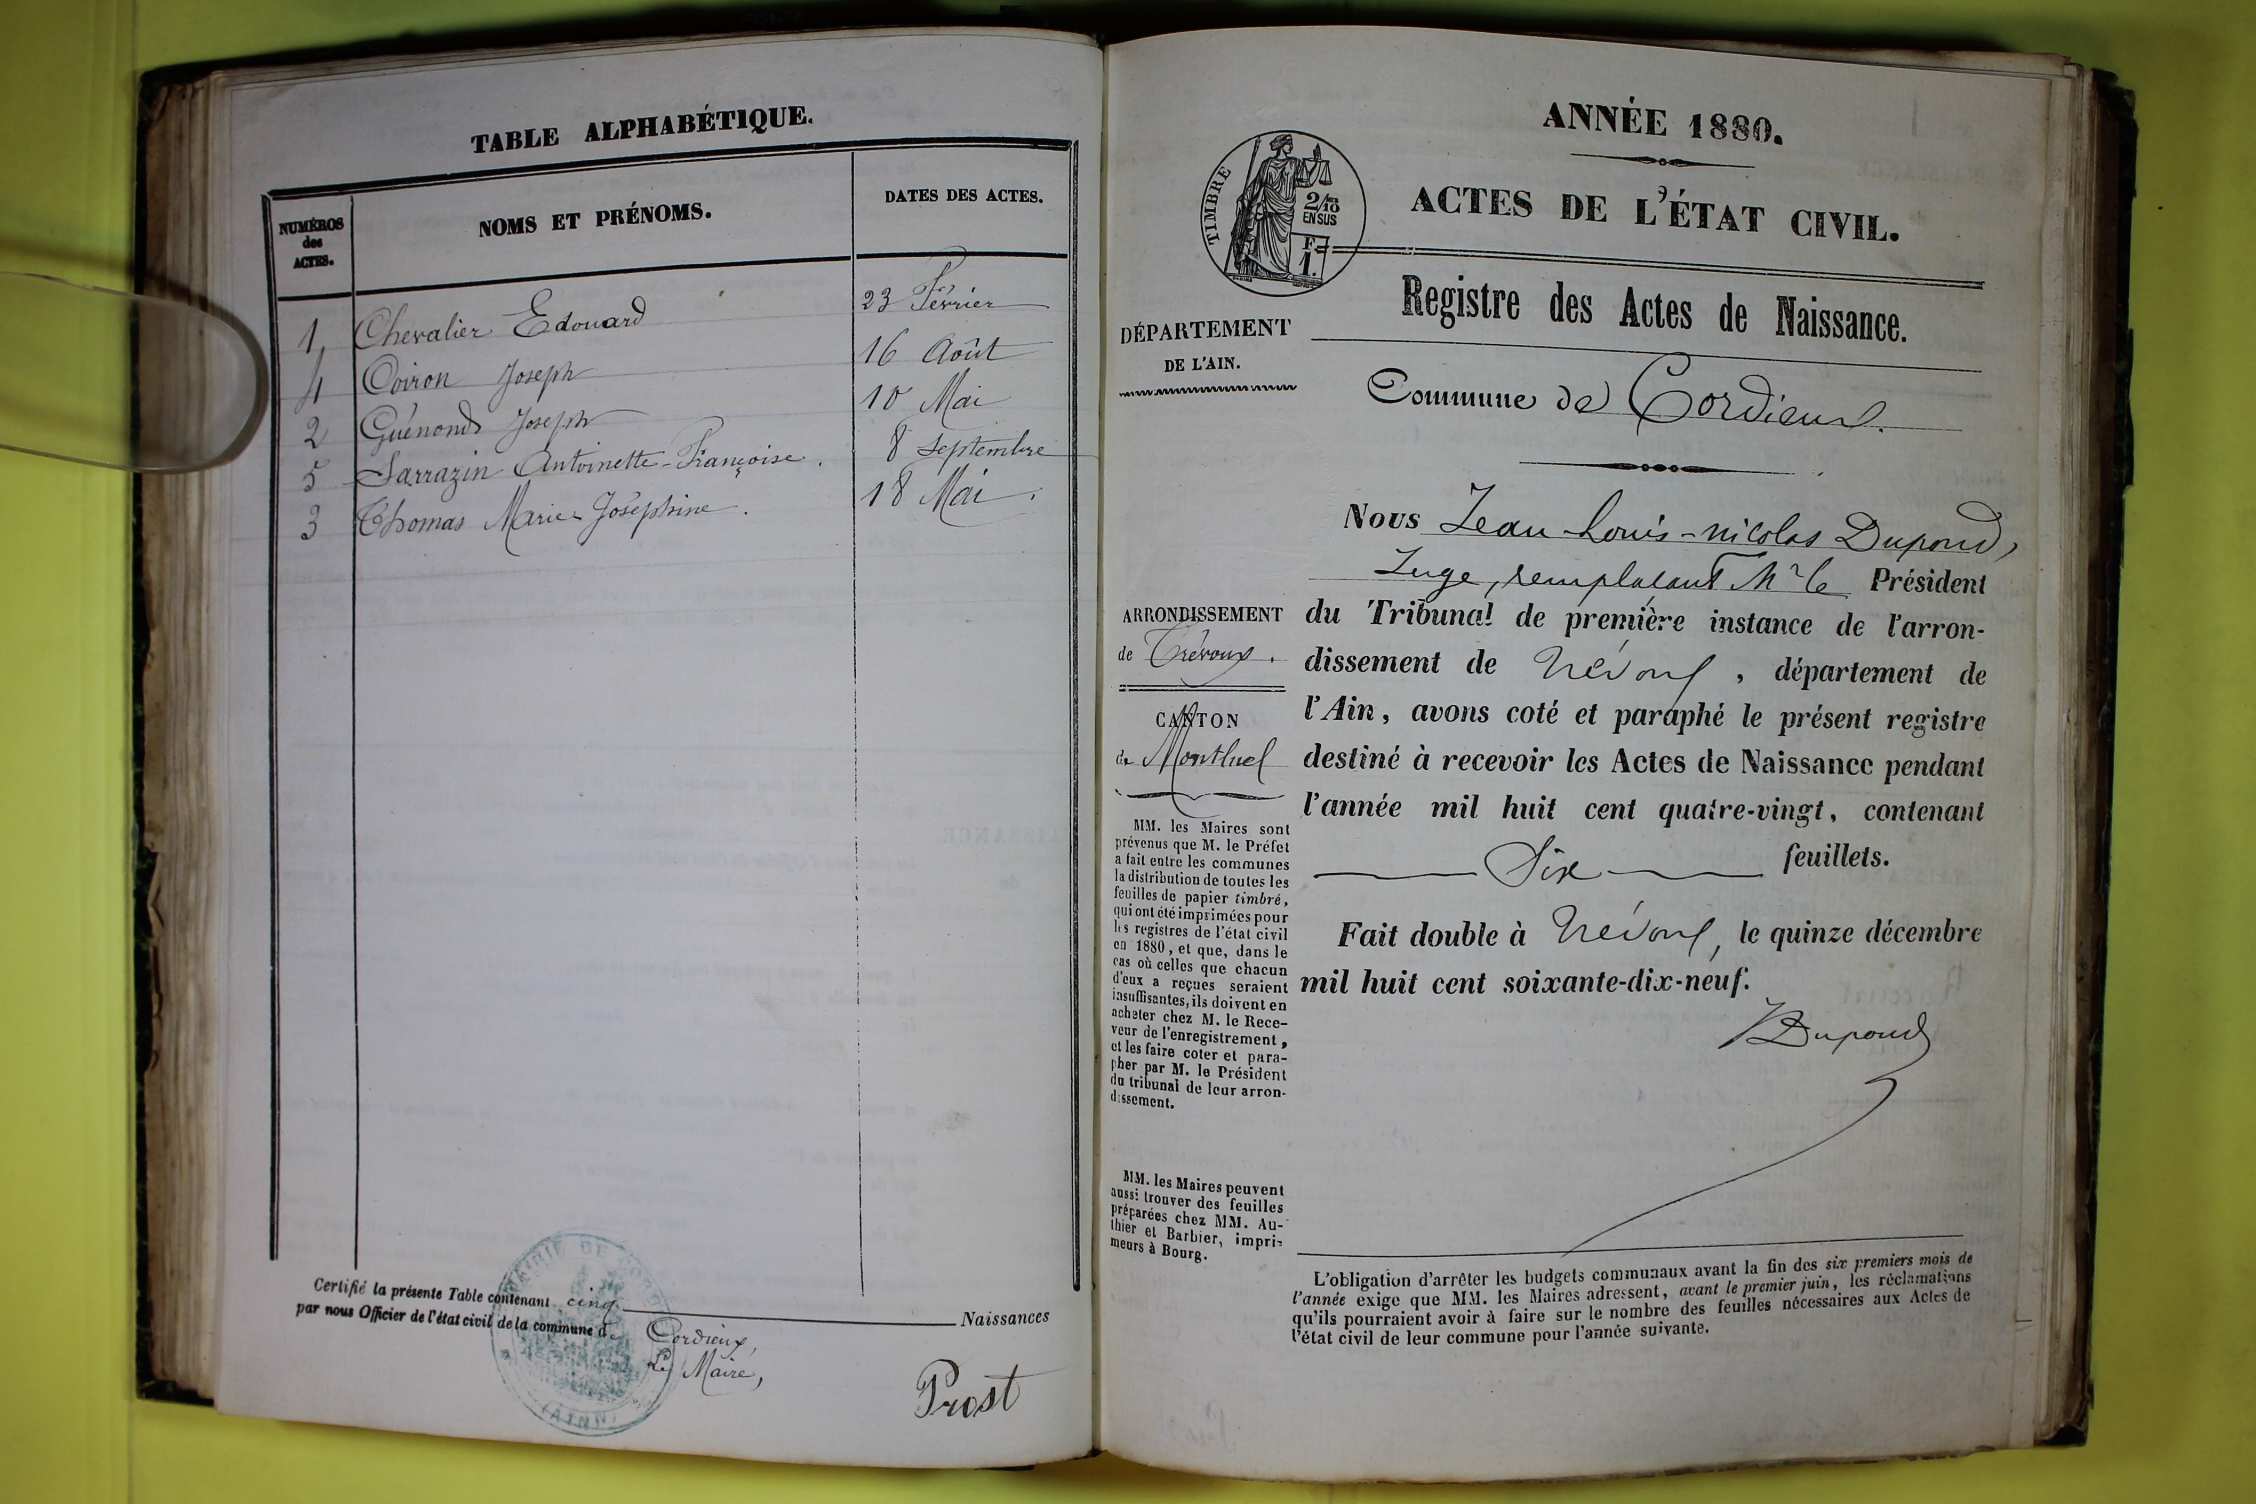 TABLE ALPHABÉTIQUE.
NUMÉROS des ACTES. NOMS ET PRÉNOMS. DATES DES ACTES.
1 Chevalier Edouard 23 Février
4 Coiron Joseph 16 Août
2 Guénond Joseph 10 Mai
5 Sarrazin Antoinette-Françoise. 8 Septembre
3 Thomas Marie-Joséphine. 18 Mai.
Certifié la présente Table contenant cinq Naissances
par nous Officier de l'état civil de la commune de Cordieux,
Le Maire,
Prost
MAIRIE DE CORD
(AIN)
ANNÉE 1880.
ACTES DE L'ÉTAT CIVIL.
TIMBRE
2/10
EN SUS
F.
1.
Registre des Actes de Naissance.
DÉPARTEMENT
DE L'AIN.
Commune de Cordieux.
ARRONDISSEMENT
de Trévoux.
CANTON
de Montluel
MM. les Maires sont
prévenus que M. le Préfet
a fait entre les communes
la distribution de toutes les
feuilles de papier timbré,
qui ont été imprimées pour
les registres de l'état civil
en 1880, et que, dans le
cas où celles que chacun
d'eux a reçues seraient
insuffisantes, ils doivent en
acheter chez M. le Rece-
veur de l'enregistrement,
et les faire coter et para-
pher par M. le Président
du tribunal de leur arron-
dissement.
MM. les Maires peuvent
aussi trouver des feuilles
préparées chez MM. Au-
thier et Barbier, impri-
meurs à Bourg.
Nous Jean-Louis-Nicolas Dupond,
Juge, remplaçant Mr le Président
du Tribunal de première instance de l'arron-
dissement de Trévoux, département de
l'Ain, avons coté et paraphé le présent registre
destiné à recevoir les Actes de Naissance pendant
l'année mil huit cent quatre-vingt, contenant
Six feuillets.
Fait double à Trévoux, le quinze décembre
mil huit cent soixante-dix-neuf.
Dupond
L'obligation d'arrêter les budgets communaux avant la fin des six premiers mois de
l'année exige que MM. les Maires adressent, avant le premier juin, les réclamations
qu'ils pourraient avoir à faire sur le nombre des feuilles nécessaires aux Actes de
l'état civil de leur commune pour l'année suivante.